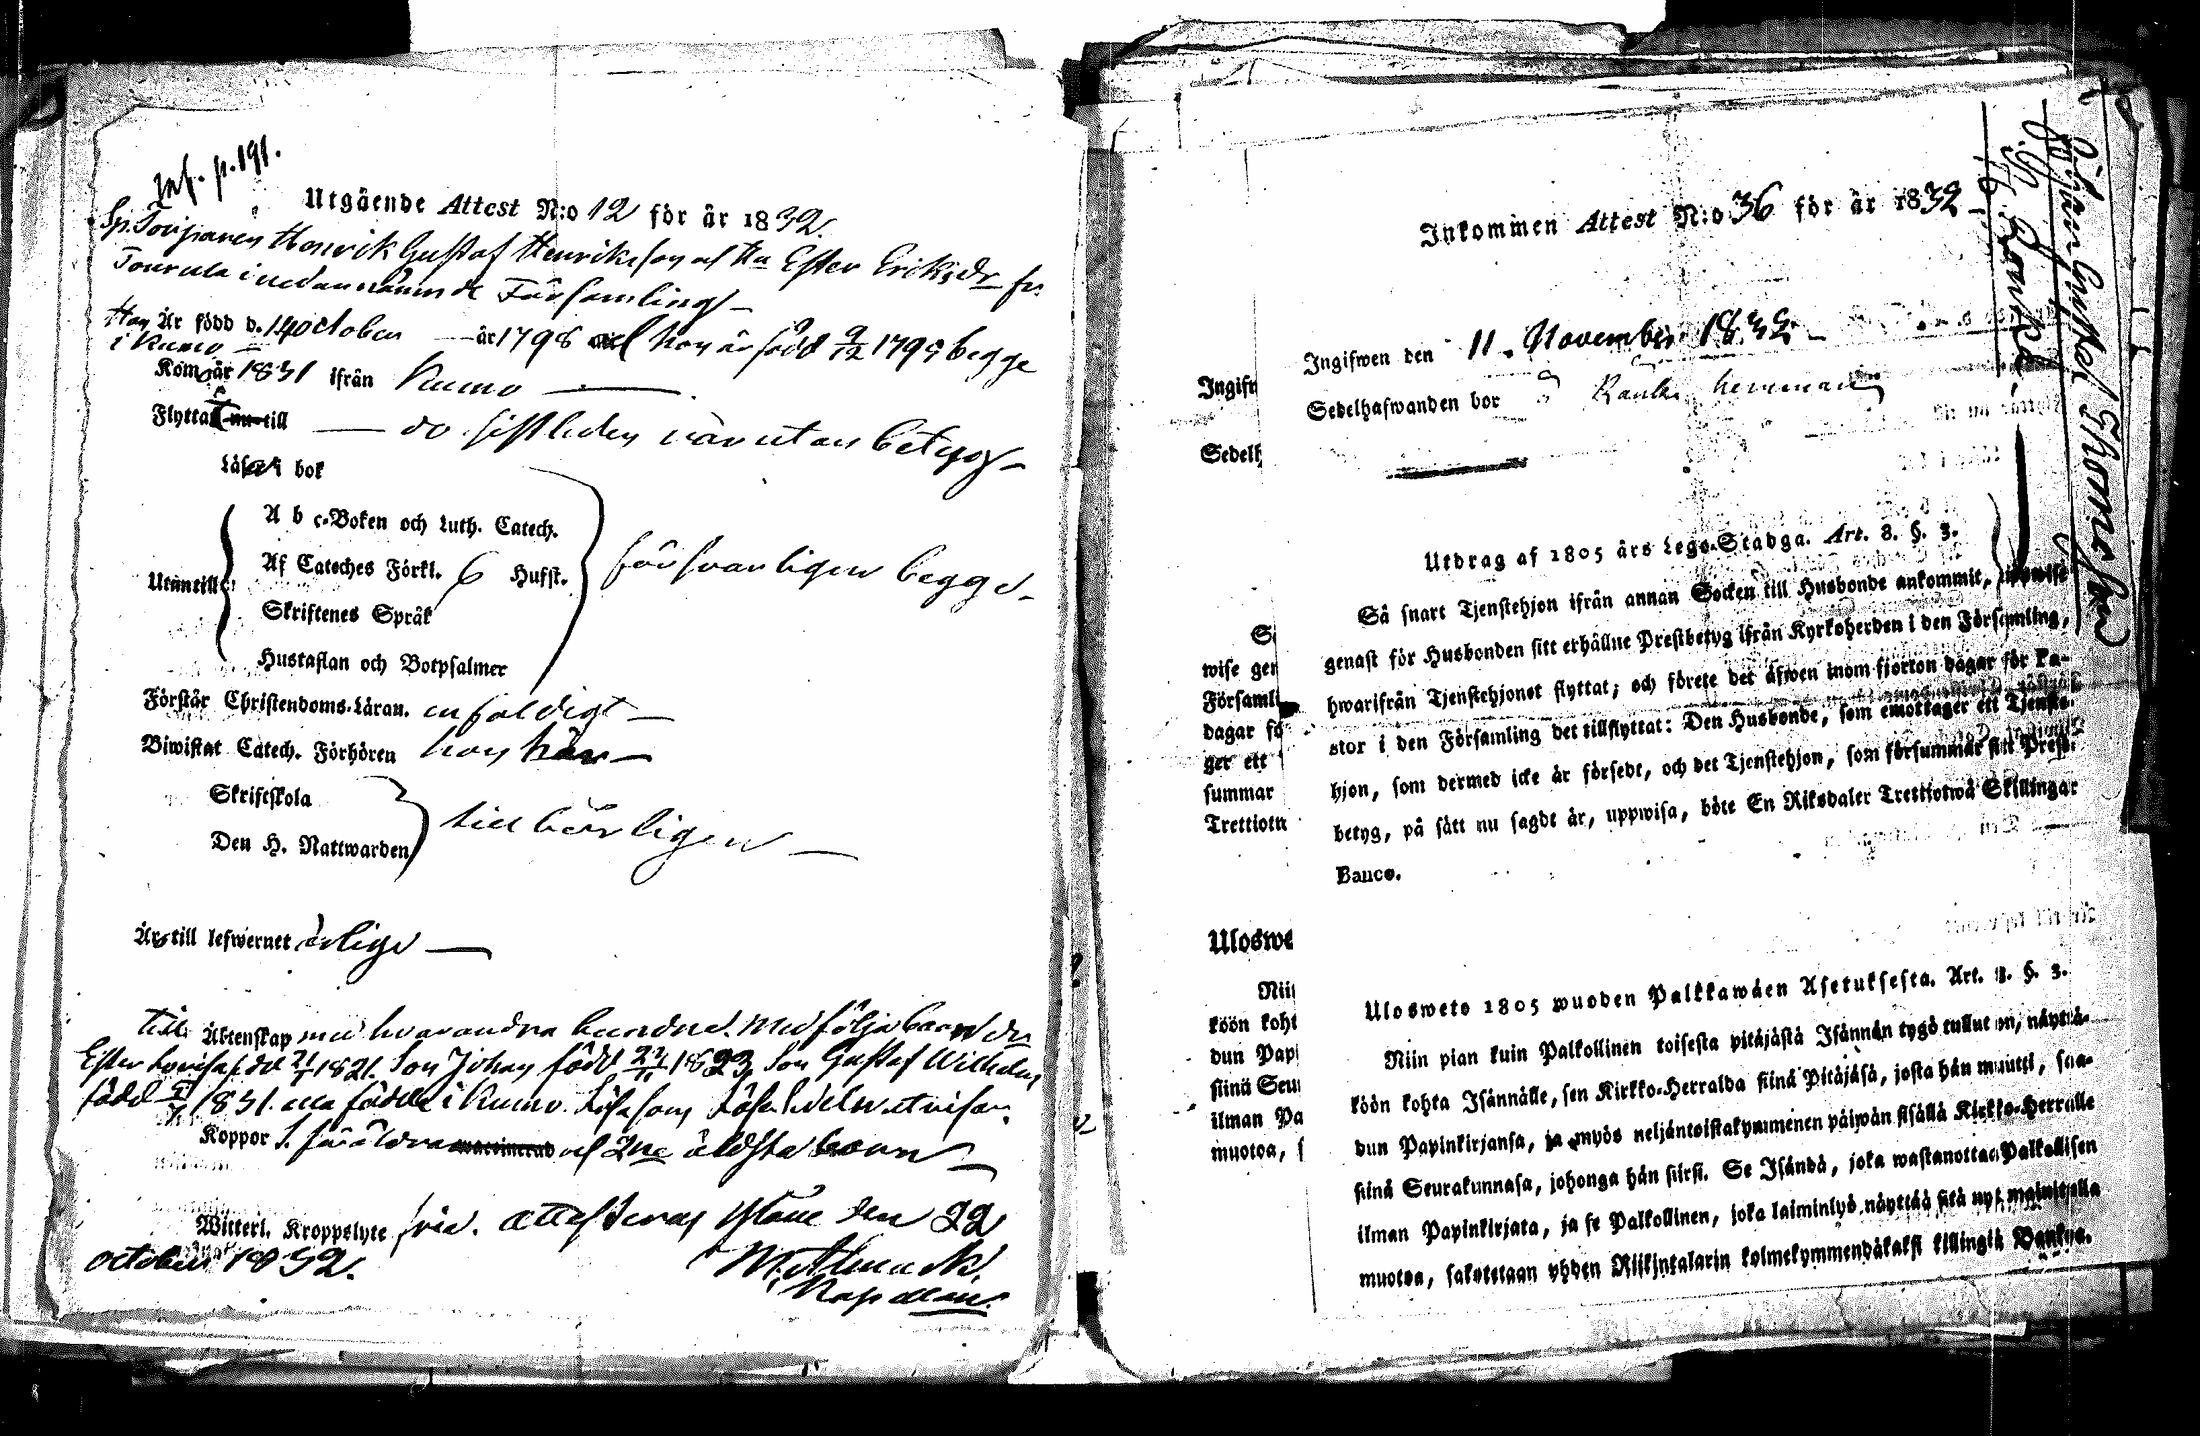 Inf. p. 191.
Utgående Attest N:o 12 för år 1832.
Sp. Torparen Henrik Gustaf Henriksson och Hu Ester Eriksdr fr.
Tourula i nedannämnde Församling
Han Är född d. 14 October år 1798 och hon är född 9/12 1799 begge
i Kumo
Kom år 1831 ifrån Kumo
Flyttat till do sistleden vår utan betyg
Läsa i bok
A b c-Boken och Luth. Catech.
Af Cateches Förkl. 6 Hufst.
Utantill försvarligen begge
Skriftenes Språk
Hustaflan och Botpsalmer
Förstår Christendoms-Läran. enfaldigt
Biwistat Catech. Förhören hon här
Skriftskola
tillbörligen
Den H. Nattwarden
Är till lefwernet ärlige
till Äktenskap med hvarandra bundne. Medfölja barn dr
Ester Lovisa f. dd 21/1 1821. Son Johan född 1823, Son Gustaf Wilhelm
född 1831. alla födde i Kumo. Läsa som utvisar.
Koppor f. föräldrarne och 2ne äldsta barn
Witterl. Kroppslyte frie. Attesteras Ylane den 22
October 1832.
Kapellan.
Inkommen Attest N:o 36 för år 1832
Ingifwen den 11. November 1832
Sedelhafwanden bor å hemman
Utdrag af 1805 års Lego-Stadga. Art. 8. §. 3.
Så snart Tjenstehjon ifrån annan Socken till Husbonde ankommit, uppwise
genast för Husbonden sitt erhållne Prestbetyg ifrån Kyrkoherden i den Församling,
hwarifrån Tjenstehjonet flyttat; och förete det äfwen inom fjorton dagar för Pa-
stor i den Församling det tillflyttat: Den Husbonde, som emottager ett Tjenste-
hjon, som dermed icke är försedt, och det Tjenstehjon, som försummar sitt Prest-
betyg, på sätt nu sagdt är, uppwisa, böte En Riksdaler Trettiotwå Skillingar
Banco.
Ulosweto 1805 wuoden Palkkawäen Asetuksesta. Art. 8. §. 3.
Niin pian kuin Palkollinen toisesta pitäjästä Isännän tygö tullut on, näyttä-
köön kohta Isännälle, sen Kirkko-Herralda siinä Pitäjäsä, josta hän muutti, saa-
dun Papinkirjansa, ja myös neljäntoistakymmenen päiwän sisällä Kirkko-Herralle
siinä Seurakunnasa, johonga hän siirsi. Se Isändä, joka wastanottaa Palkollisen
ilman Papinkirjata, ja se Palkollinen, joka laiminlyö näyttää sitä nyt mainitulla
muotoa, sakotetaan yhden Riikintalarin kolmekymmendäkaksi killingiä Bankoa.
Ingifw
Sedelh
wise gen
Församl
dagar fö
ger ett
summar
Trettiotw
Uloswe
Niin
köön koht
dun Papi
siinä Seu
ilman Pa
muotoa, s